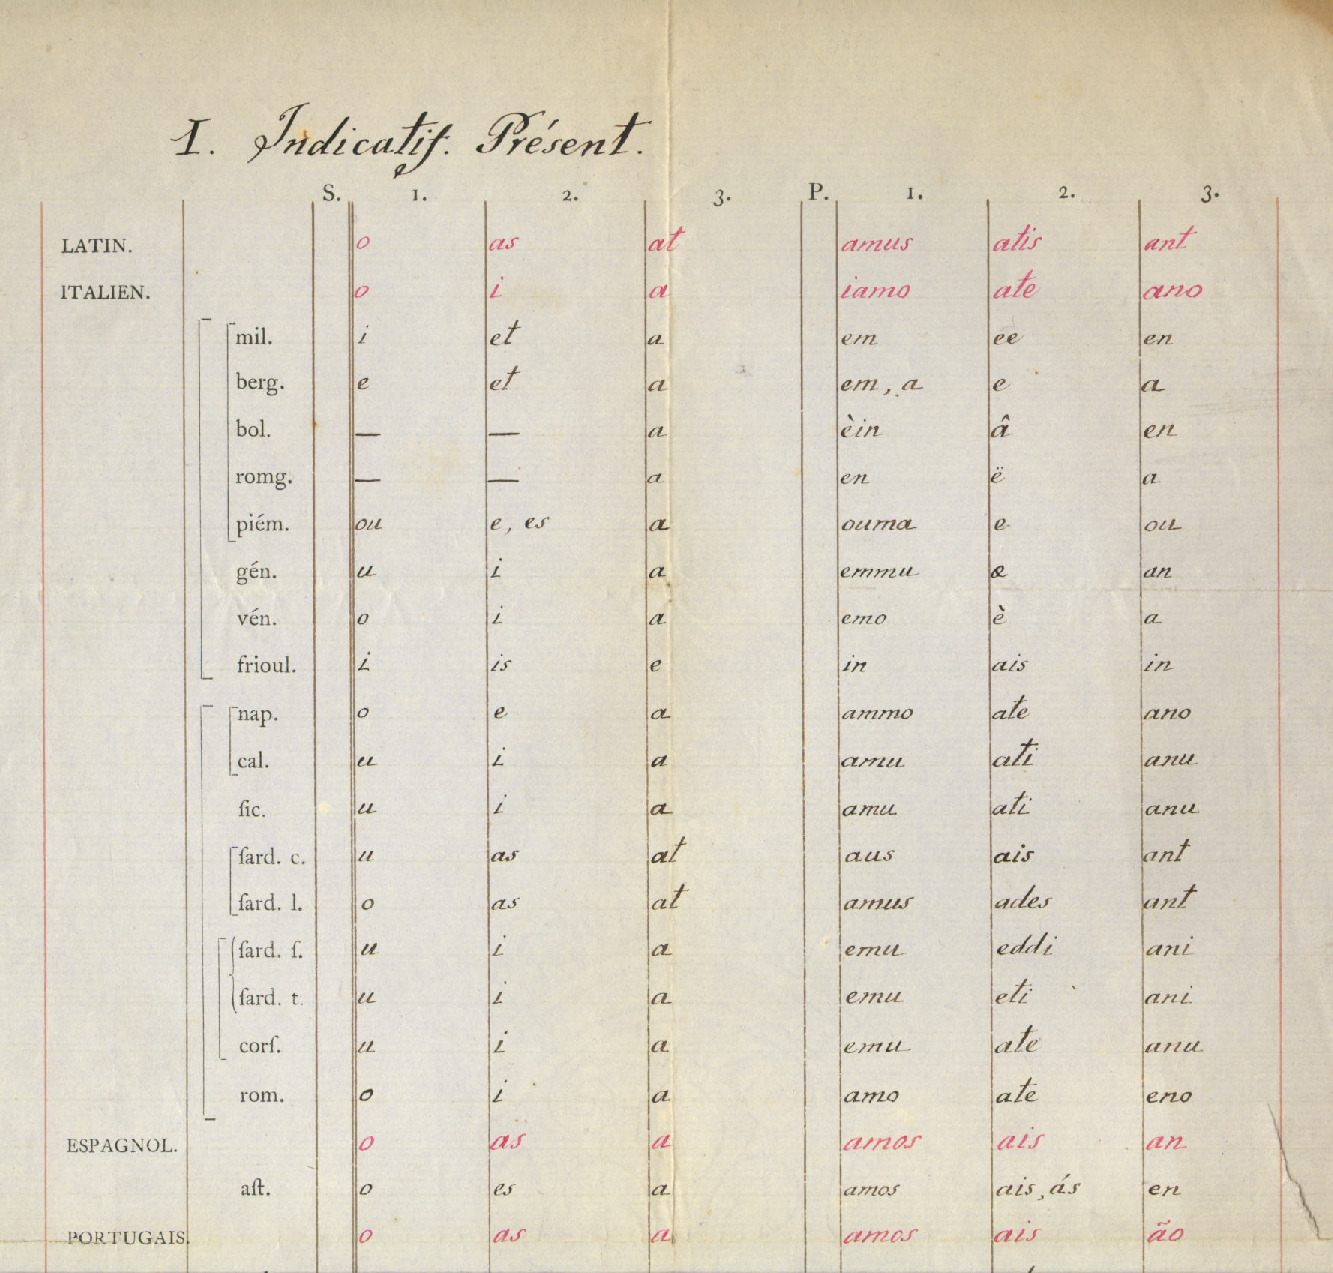 I. Indicatif. Présent.
S. 1. 2. 3. P. 1. 2. 3.
LATIN. o as at amus atis ant
ITALIEN. o i a iamo ate ano
mil. i et a em ee en
berg. e et a em, a e a
bol. — — a èin â en
romg. — — a en ë a
piém. ou e, es a ouma e ou
gén. u i a emmu æ an
vén. o i a emo è a
frioul. i is e in ais in
nap. o e a ammo ate ano
cal. u i a amu ati anu
ſic. u i a amu ati anu
ſard. c. u as at aus ais ant
ſard. l. o as at amus ades ant
ſard. ſ. u i a emu eddi ani
ſard. t. u i a emu eti ani
corſ. u i a emu ate anu
rom. o i a amo ate eno
ESPAGNOL. o as a amos ais an
aſt. o es a amos ais, ás en
PORTUGAIS. o as a amos ais ão